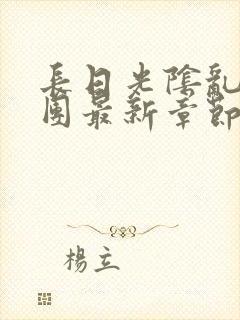 長日光陰亂
團最新章節
楊立